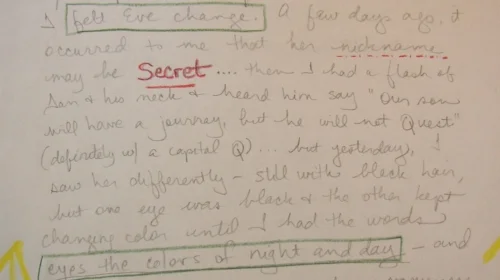 I felt Eve change. A few days ago, it
occurred to me that her nickname
may be Secret .... then I had a flash of
Dan & his neck & heard him say "Our son
will have a journey, but he will not Quest"
(definitely w/ a capital Q) ... but yesterday, I
saw her differently - still with black hair,
but one eye was black & the other kept
changing color until I had the words
eyes the colors of night and day - and